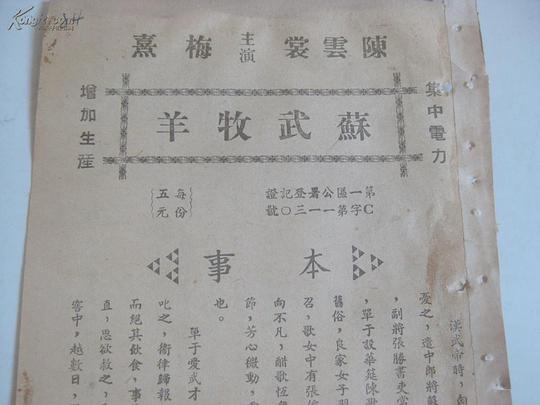 Kongfz.com
陳雲裳 主演 梅熹
集中電力
蘇武牧羊
增加生産
第一區公署登記證
C字第一一三〇號
每份五元
本事
漢武帝時,
憂之,遣中郎將蘇
,副將張勝書吏常
,單于設華筵陳歌
舊俗,良家女子
召,歌女中有張
向不凡,酣歌恆
節,芳心微動,
也。
單于愛武才
叱之,衛律歸報
而絕其飲食,事
直,思欲救之,
客中,越數日,